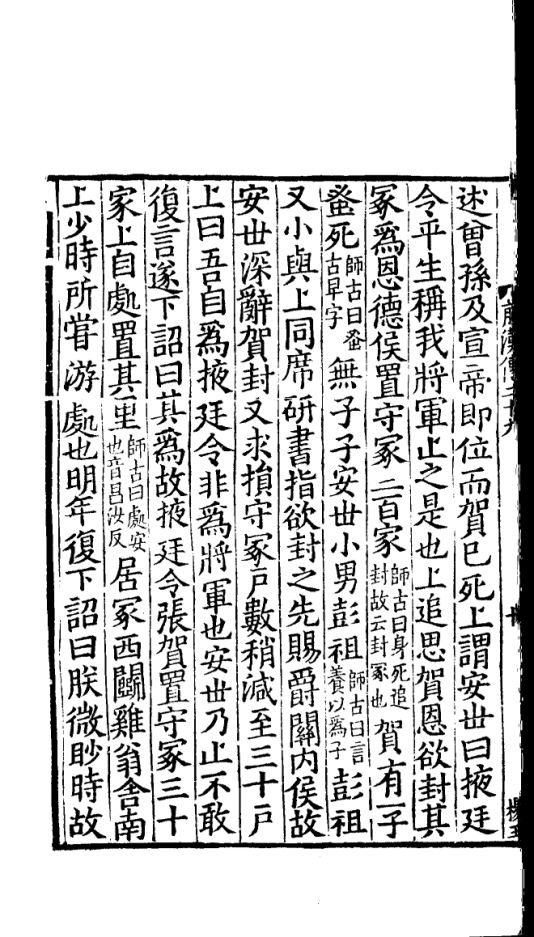 述曾孫及宣帝即位而賀已死上謂安世曰掖廷
令平生稱我將軍止之是也上追思賀恩欲封其
冢爲恩德侯置守冢二百家師古曰身死追封故云封冢也賀有一子
蚤死師古曰蚤古早字無子子安世小男彭祖師古曰言養以爲子彭祖
又小與上同席研書指欲封之先賜爵關内侯故
安世深辭賀封又求損守冢戶數稍減至三十戶
上曰吾自爲掖廷令非爲將軍也安世乃止不敢
復言遂下詔曰其爲故掖廷令張賀置守冢三十
家上自處置其里師古曰處安也音昌汝反居冢西鬬雞翁舍南
上少時所嘗游處也明年復下詔曰朕微眇時故